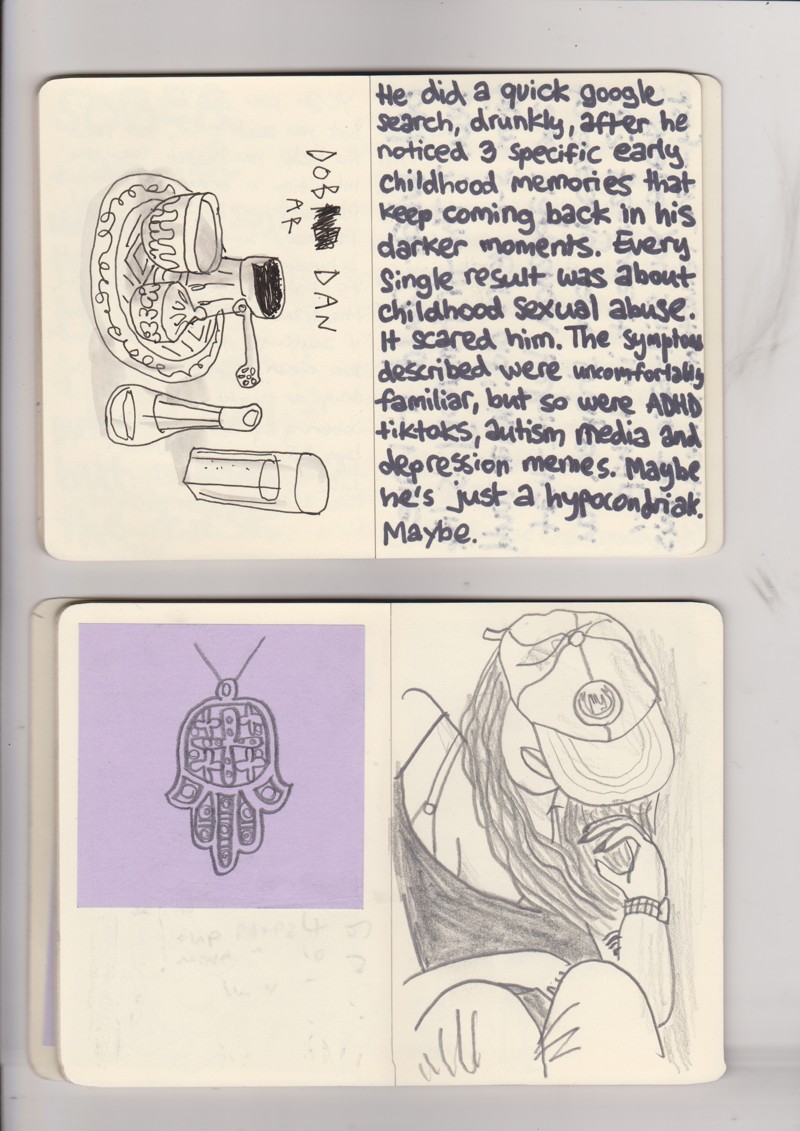 DOB DAN
AR
He did a quick google
search, drunkly, after he
noticed 3 specific early
childhood memories that
keep coming back in his
darker moments. Every
Single result was about
childhood sexual abuse.
It scared him. The symptoms
described were uncomfortably
familiar, but so were ADHD
tiktoks, autism media and
depression memes. Maybe
he's just a hypocondriak.
Maybe.